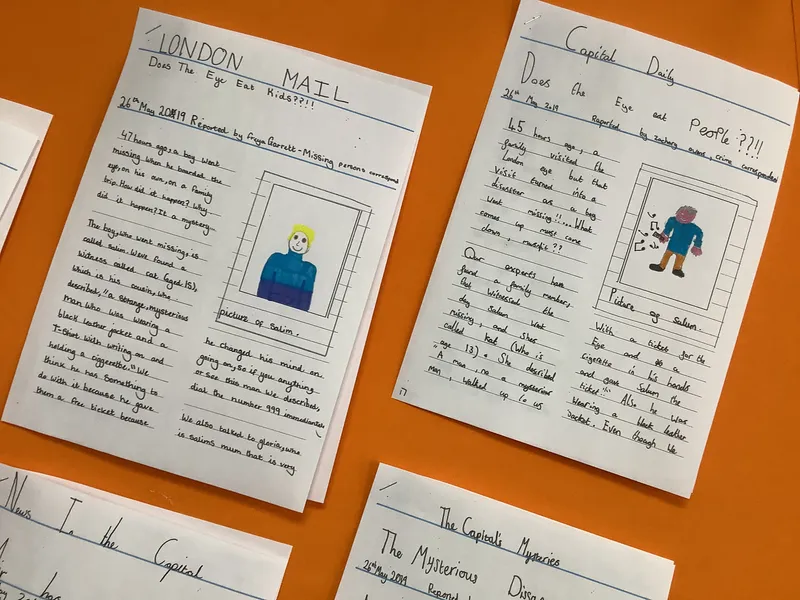 LONDON MAIL
Does The Eye Eat Kids??!!
26th May 2019 Reported by Freya Garrett - Missing persons correspond
47 hours ago, a boy went
missing when he boarded the
eye, on his own, on a family
trip. How did it happen? Why
did it happen? It a mystery...
The boy, who went missing, is
called Salim. We've found a
witness called cat (aged 15),
which is his cousin, who
described, "a strange, mysterious
man who was wearing a
black leather jacket and a
T-Shirt with writing on and
holding a ciggerette." We
think he has something to
do with it because he gave
them a free ticket because
picture of Salim.
he changed his mind on
going on, so if you anything
or see this man we described,
dial the number 999 immediantely
We also talked to gloria, who
is salims mum that is very
Capital Daily
Does the Eye eat People??!!
26th May 2019 Reported by Zachary evans, crime correspondent
45 hours ago, a
family visited the
London eye but that
visit turned into a
disaster as a boy
went missing!!... What
comes up must come
down, musn't it??
Our experts have
found a family member,
that witnessed the
day Salum went
missing, and shes
called kat (who is
age 13). She described
"A man, no a mysterious
man, walked up to us
Picture of Salum.
With a ticket for the
Eye and a
cigarette in his hands
and gave Salum the
ticket!" Also he was
wearing a black leather
Jacket. Even though we
17
News In the Capital
The Capital's Mysteries
The Mysterious
26th May 2019